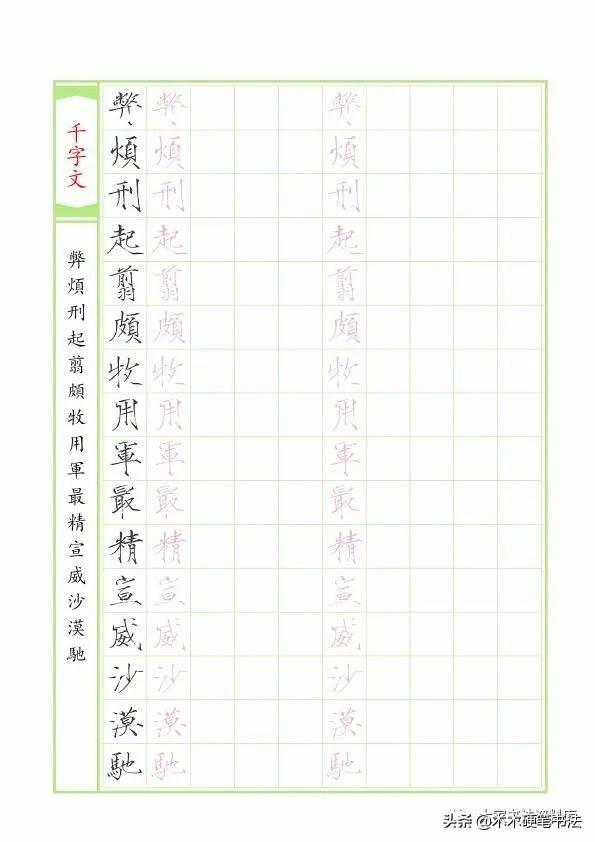 千字文
弊煩刑起翦頗牧用軍最精宣威沙漠馳
弊煩刑起翦頗牧用軍最精宣威沙漠馳
弊煩刑起翦頗牧用軍最精宣威沙漠馳
弊煩刑起翦頗牧用軍最精宣威沙漠馳
头条 @木木硬笔书法